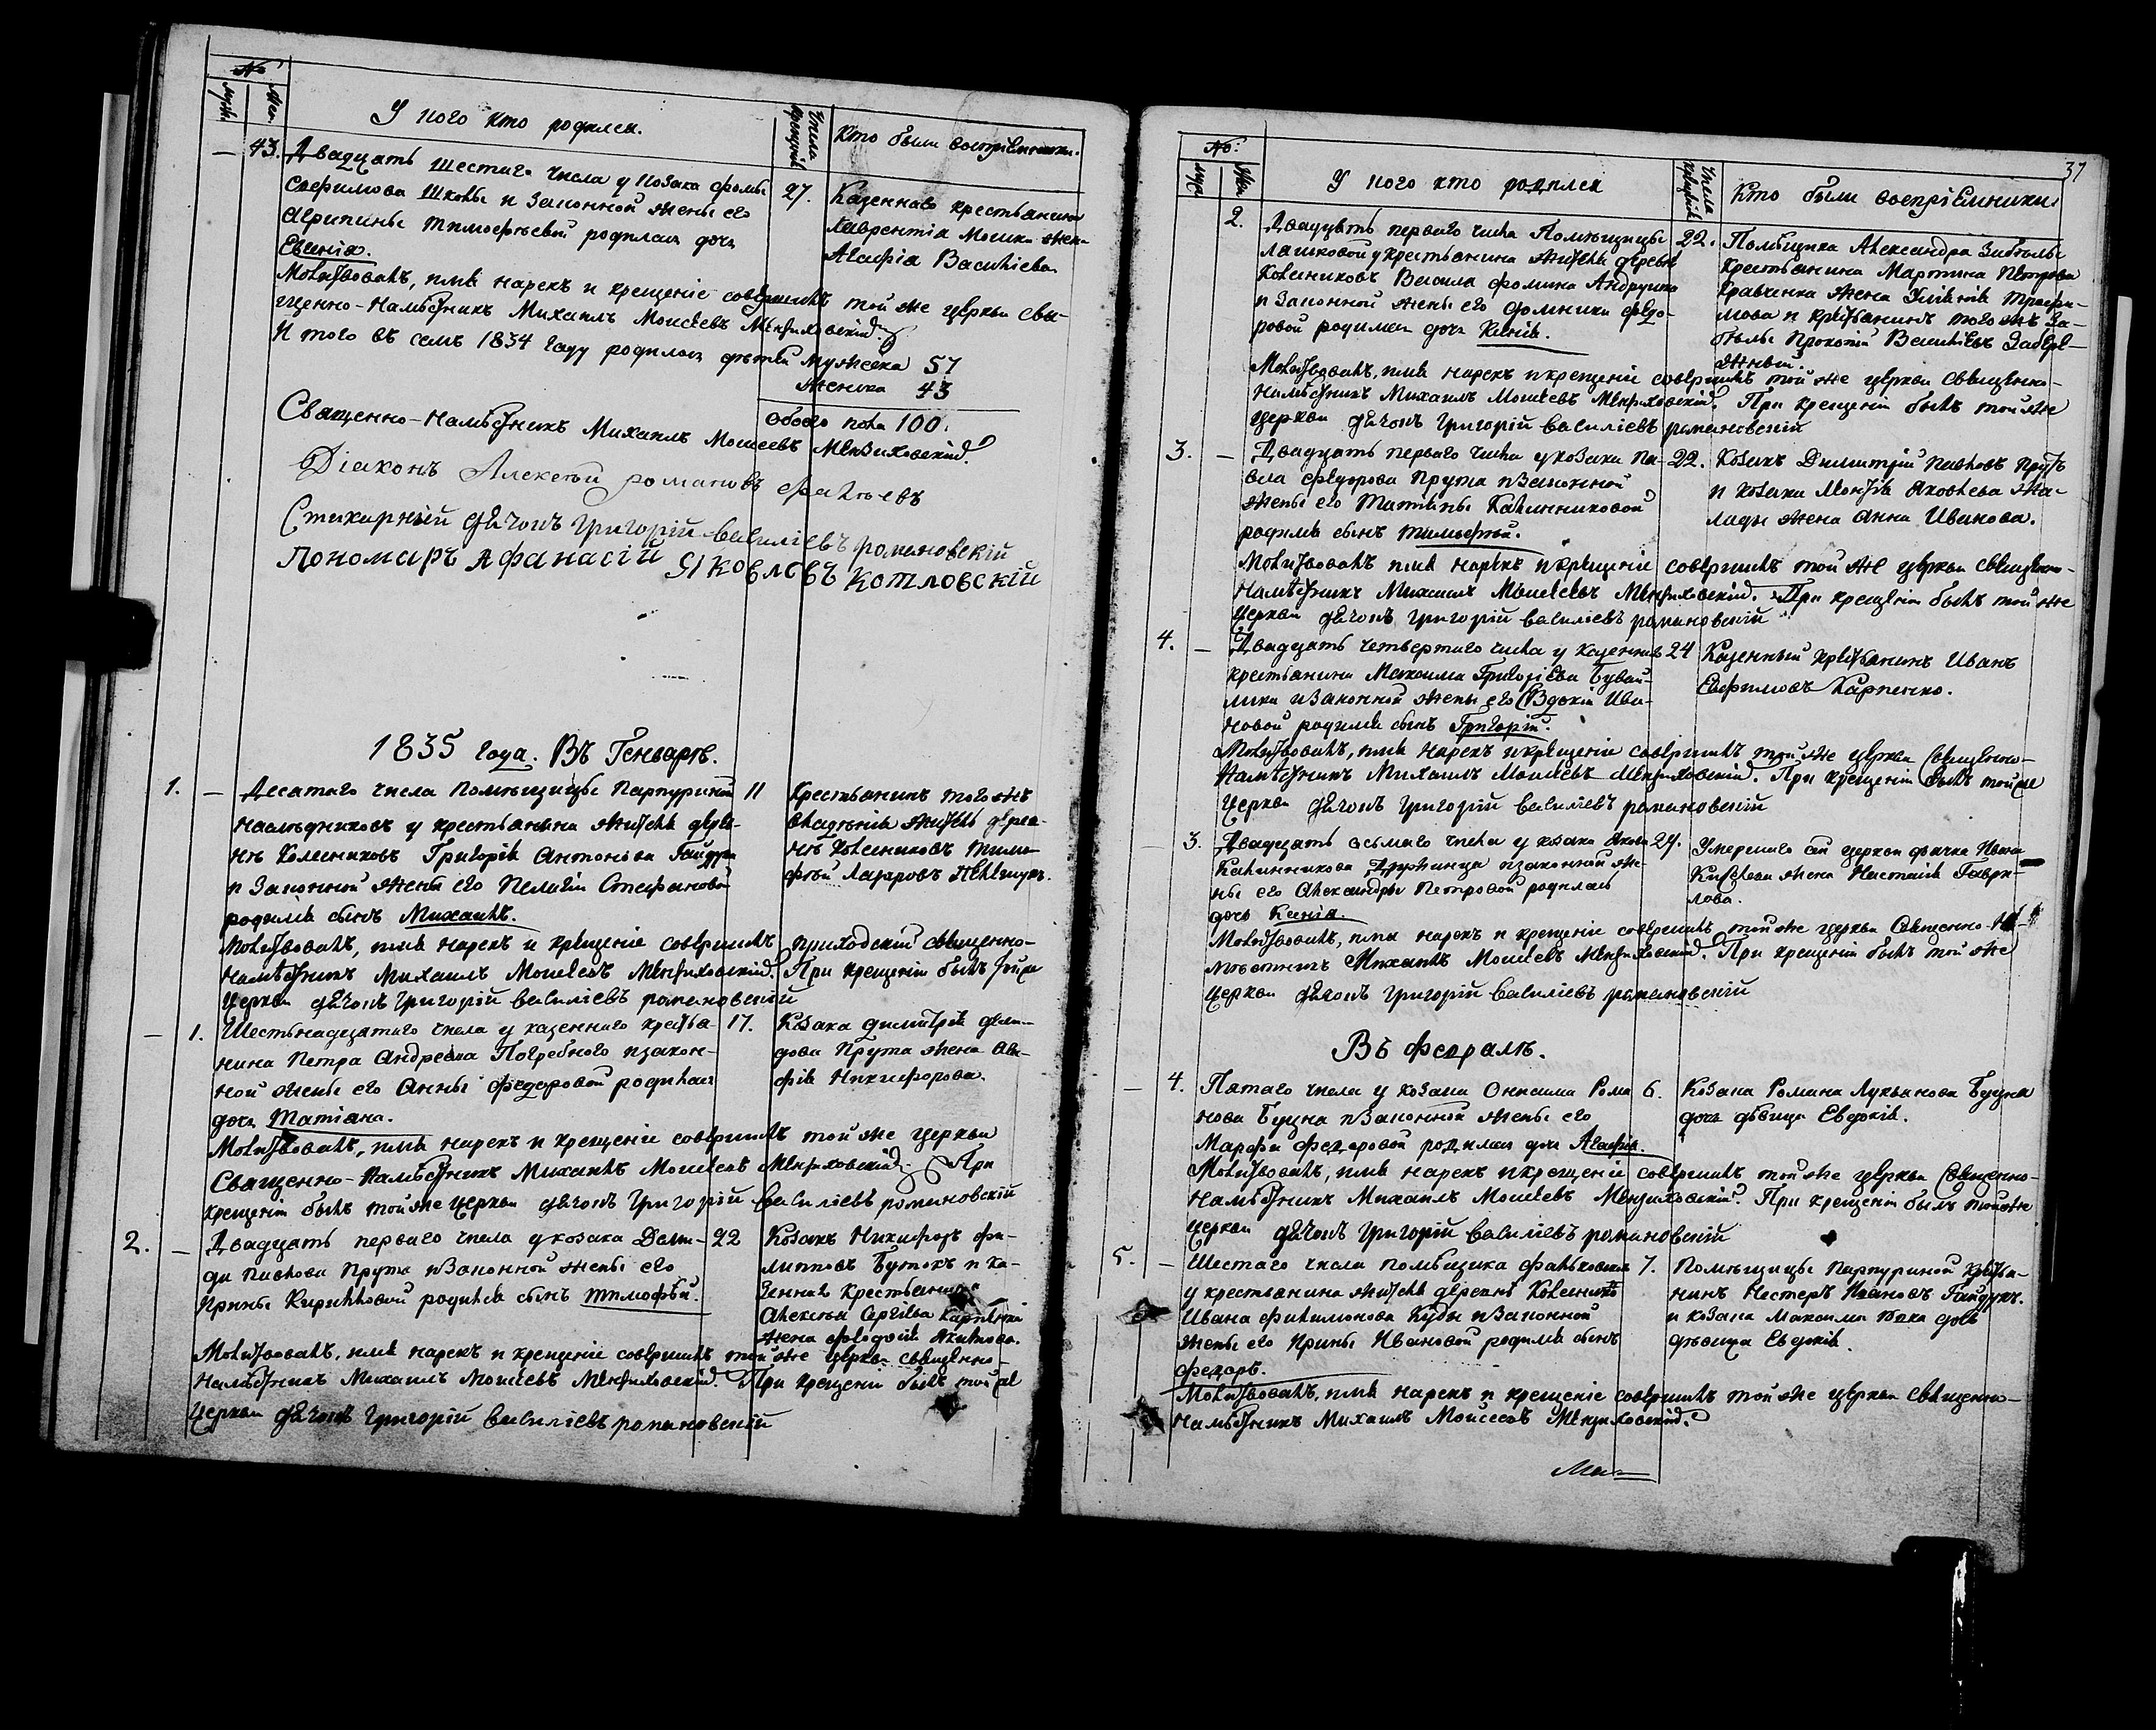 №
муж. жен.
У кого кто родился.
Числа крещенія
Кто были воспріемники.
— 43. Двадцать шестаго числа у козака Фомы
Стефанова и законной жены его
Агрипины Тимофеевой родилась дочь
Евгенія.
27.
Казеннаго крестьянина
Лаврентія жена
Агафія Васильева
Молитвовалъ, имя нарекъ и крещеніе совершилъ той же церкви свя-
щенно-Намѣстникъ Михаилъ Моисеевъ Мензиховскій.
И того въ семъ 1834 году родилось дѣтей мужеска 57
женска 43
обоего пола 100.
Священно-Намѣстникъ Михаилъ Моисеевъ Мензиховскій.
Діаконъ Алексѣй Романовъ
Стихирный дячокъ Григорій Василіевъ Романовскій
Пономаръ Афанасій Яковлевъ Котловскій
1835 года. Въ Генварѣ.
1. — Десятаго числа помѣщицы Парпуриной
наслѣдниковъ у крестьянина жителя дерев-
нѣ Колесниковъ Григорія Антонова Гайдука
и законной жены его Пелагіи Стефановой
родился сынъ Михаилъ.
11
Крестьянинъ того жъ
владѣнія житель дерев-
нѣ Колесниковъ Тимо-
фѣй Лазаровъ
Молитвовалъ, имя нарекъ и крещеніе совершилъ приходскій священно-
Намѣстникъ Михаилъ Моисеевъ Мензиховскій. При крещеніи былъ той же
церкви дячокъ Григорій Василіевъ Романовскій
— 1. Шестьнадцатаго числа у казеннаго крестья-
нина Петра Андреева Погребного и закон-
ной жены его Анны Федоровой родилась
дочь Татіана.
17.
Козака Димитрія Деми-
дова Прута жена Ага-
фія Никифорова.
Молитвовалъ, имя нарекъ и крещеніе совершилъ той же церкви
Священно-Намѣстникъ Михаилъ Моисеевъ Мензиховскій. При
крещеніи былъ той же церкви дячокъ Григорій Василіевъ Романовскій
2. — Двадцать перваго числа у козака Деми-
да Павлова Прута и законной жены его
Ирины Кирилловой родился сынъ Тимофѣй.
22
Козакъ Никифоръ Фи-
липповъ Бутокъ и ка-
зеннаго крестьянина
Алексѣя Сергѣева Карпенка
жена Феодосія Акимова.
Молитвовалъ, имя нарекъ и крещеніе совершилъ той же церкви священно-
Намѣстникъ Михаилъ Моисеевъ Мензиховскій. При крещеніи былъ той же
церкви дячокъ Григорій Василіевъ Романовскій
37
№:
муж жен
У кого кто родился
Числа крещенія
Кто были воспріемники
2. Двадцать перваго числа Помѣщицы
у крестьянина жителя деревнѣ
Колесниковъ Василя Фомина Андрущка
и законной жены его Домники Федо-
ровой родилась дочь Ксенія.
22.
Помѣщика Александра Забѣлы
крестьянина Мартина Петрова
Кравченка жена Трофи-
мова и крестьянинъ того жъ За-
бѣлы Прокопій Васильевъ
Молитвовалъ, имя нарекъ и крещеніе совершилъ той же церкви священно-
Намѣстникъ Михаилъ Моисеевъ Мензиховскій. При крещеніи былъ той же
церкви дячокъ Григорій Василіевъ Романовскій
3. — Двадцать перваго числа у козака Па-
вла Федорова Прута и законной
жены его Татіяны Калинниковой
родился сынъ Тимофей.
22.
Козакъ Димитрій Павловъ Прутъ
и козака Яковлева
жена Анна Иванова.
Молитвовалъ имя нарекъ и крещеніе совершилъ той же церкви священно-
Намѣстникъ Михаилъ Моисеевъ Мензиховскій. При крещеніи былъ той же
церкви дячокъ Григорій Василіевъ Романовскій
4. — Двадцать четвертаго числа у казеннаго
крестьянина Максима Григоріева Бувай-
лика и законной жены его Евдокіи Ива-
новой родился сынъ Григорій.
24
Казенный крестьянинъ Иванъ
Евфимовъ Карпенко.
Молитвовалъ, имя нарекъ и крещеніе совершилъ той же церкви Священно-
Намѣстникъ Михаилъ Моисеевъ Мензиховскій. При крещеніи былъ той же
церкви дячокъ Григорій Василіевъ Романовскій
— 3. Двадцать осьмаго числа у козака Якова
Калинникова и законной же-
ны его Александры Петровой родилась
дочь Ксенія.
29.
Умершаго сей церкви дячка Ивана
жена Настасія Гаври-
лова.
Молитвовалъ, имя нарекъ и крещеніе совершилъ той же церкви Священно-На-
мѣстникъ Михаилъ Моисеевъ Мензиховскій. При крещеніи былъ той же
церкви дячокъ Григорій Василіевъ Романовскій
Въ Февралѣ.
— 4. Пятаго числа у козака Онисима Рома
нова Буцна и законной жены его
Марфы Федоровой родилась дочь Агафія.
6.
Козака Романа Лукьянова Буцна
дочь дѣвица Евдокія.
Молитвовалъ, имя нарекъ и крещеніе совершилъ той же церкви Священно-
Намѣстникъ Михаилъ Моисеевъ Мензиховскій. При крещеніи былъ той же
церкви дячокъ Григорій Василіевъ Романовскій
5. — Шестаго числа помѣщика
у крестьянина жителя деревнѣ Колесниковъ
Ивана Филимонова Кубы и законной
жены его Ирины Ивановой родился сынъ
Федоръ.
7.
Помѣщицы Парпуриной крестья-
нинъ Нестеръ Ивановъ Гайдукъ.
и козака Максима дочь
дѣвица Евдокія.
Молитвовалъ, имя нарекъ и крещеніе совершилъ той же церкви священно-
Намѣстникъ Михаилъ Моисеевъ Мензиховскій.